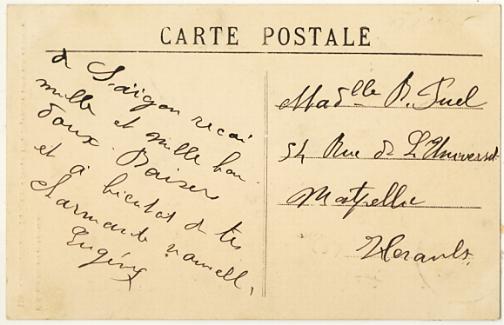 CARTE POSTALE
de Saigon recoi
mille et mille bon
doux Baiser
et a bientot de tes
Sarmante nouvell,
Eugény
Madlle B. Puel
54 Rue de L'Universit
Montpellie
Herault